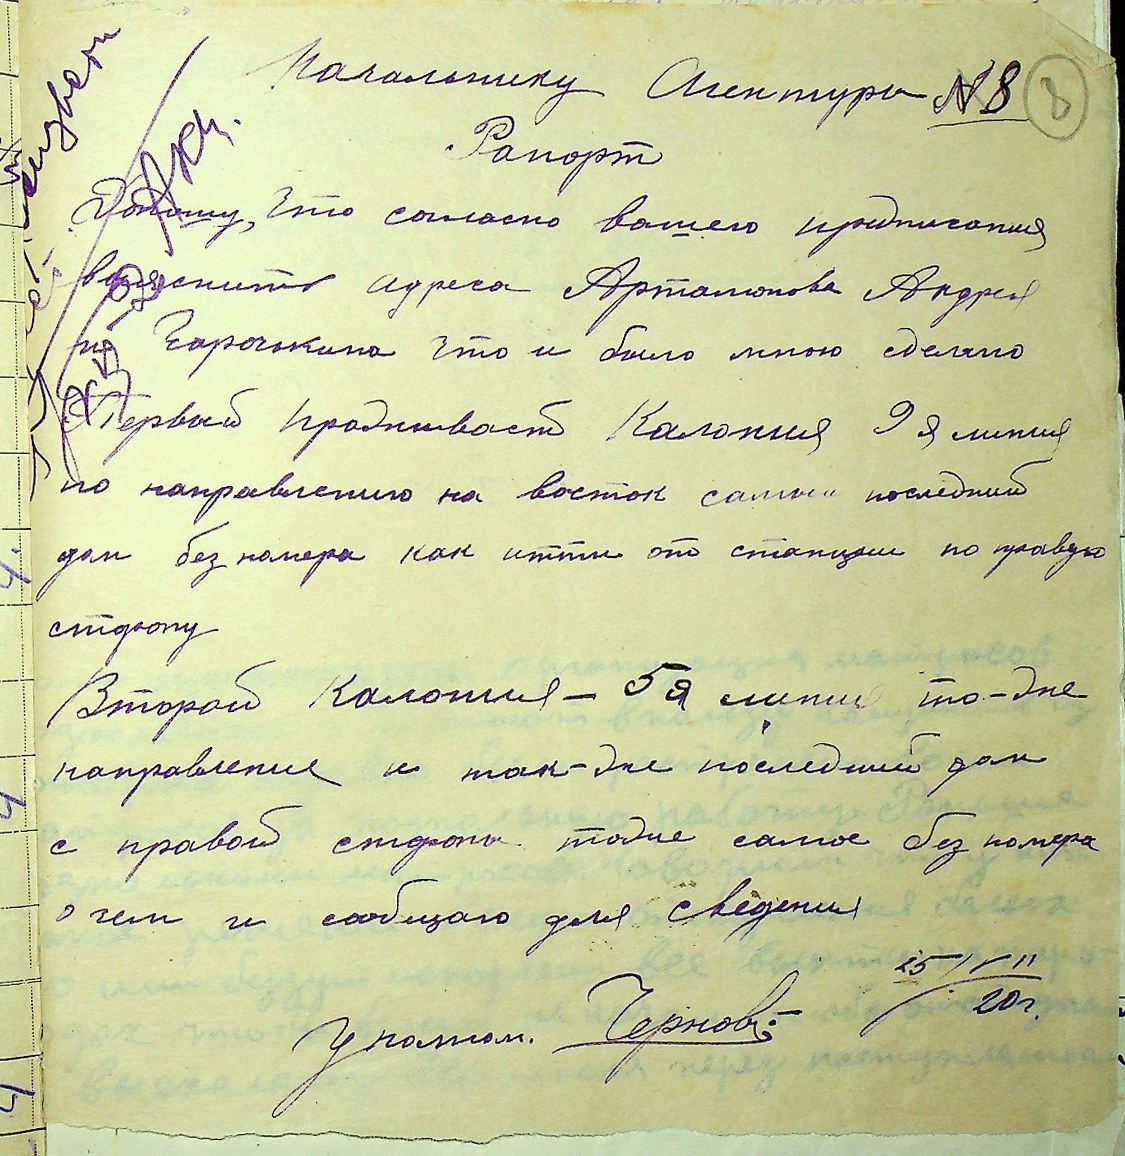 Начальнику Агентуры №8
8
Рапорт
Доношу, что согласно вашего предписания
выяснить адреса Арталионова Андрея
и Горочкина что и было мною сделано
Первый Проживает Калония 9 я линия
по направлению на восток самый последний
дом без номера как итти от станции по правую
сторону
Второй Калония – 5я линия то-же
направления и так-же последний дом
с правой стороны тоже самое без номера
о чем и сообщаю для сведения
25/ 11
20 г.
Уполном. Чернов